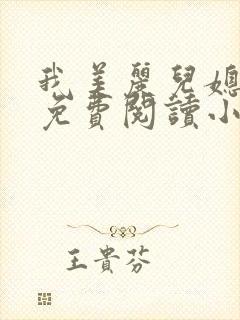 我美麗兒媳
免費閱讀小
王貴芬